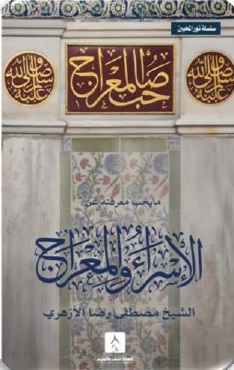 سلسلة نور المحبين
صاحب المعراج
صلى الله عليه وسلم
صلى الله عليه وسلم
ما يجب معرفته عن..
الإسراء والمعراج
الشيخ مصطفى رضا الأزهري